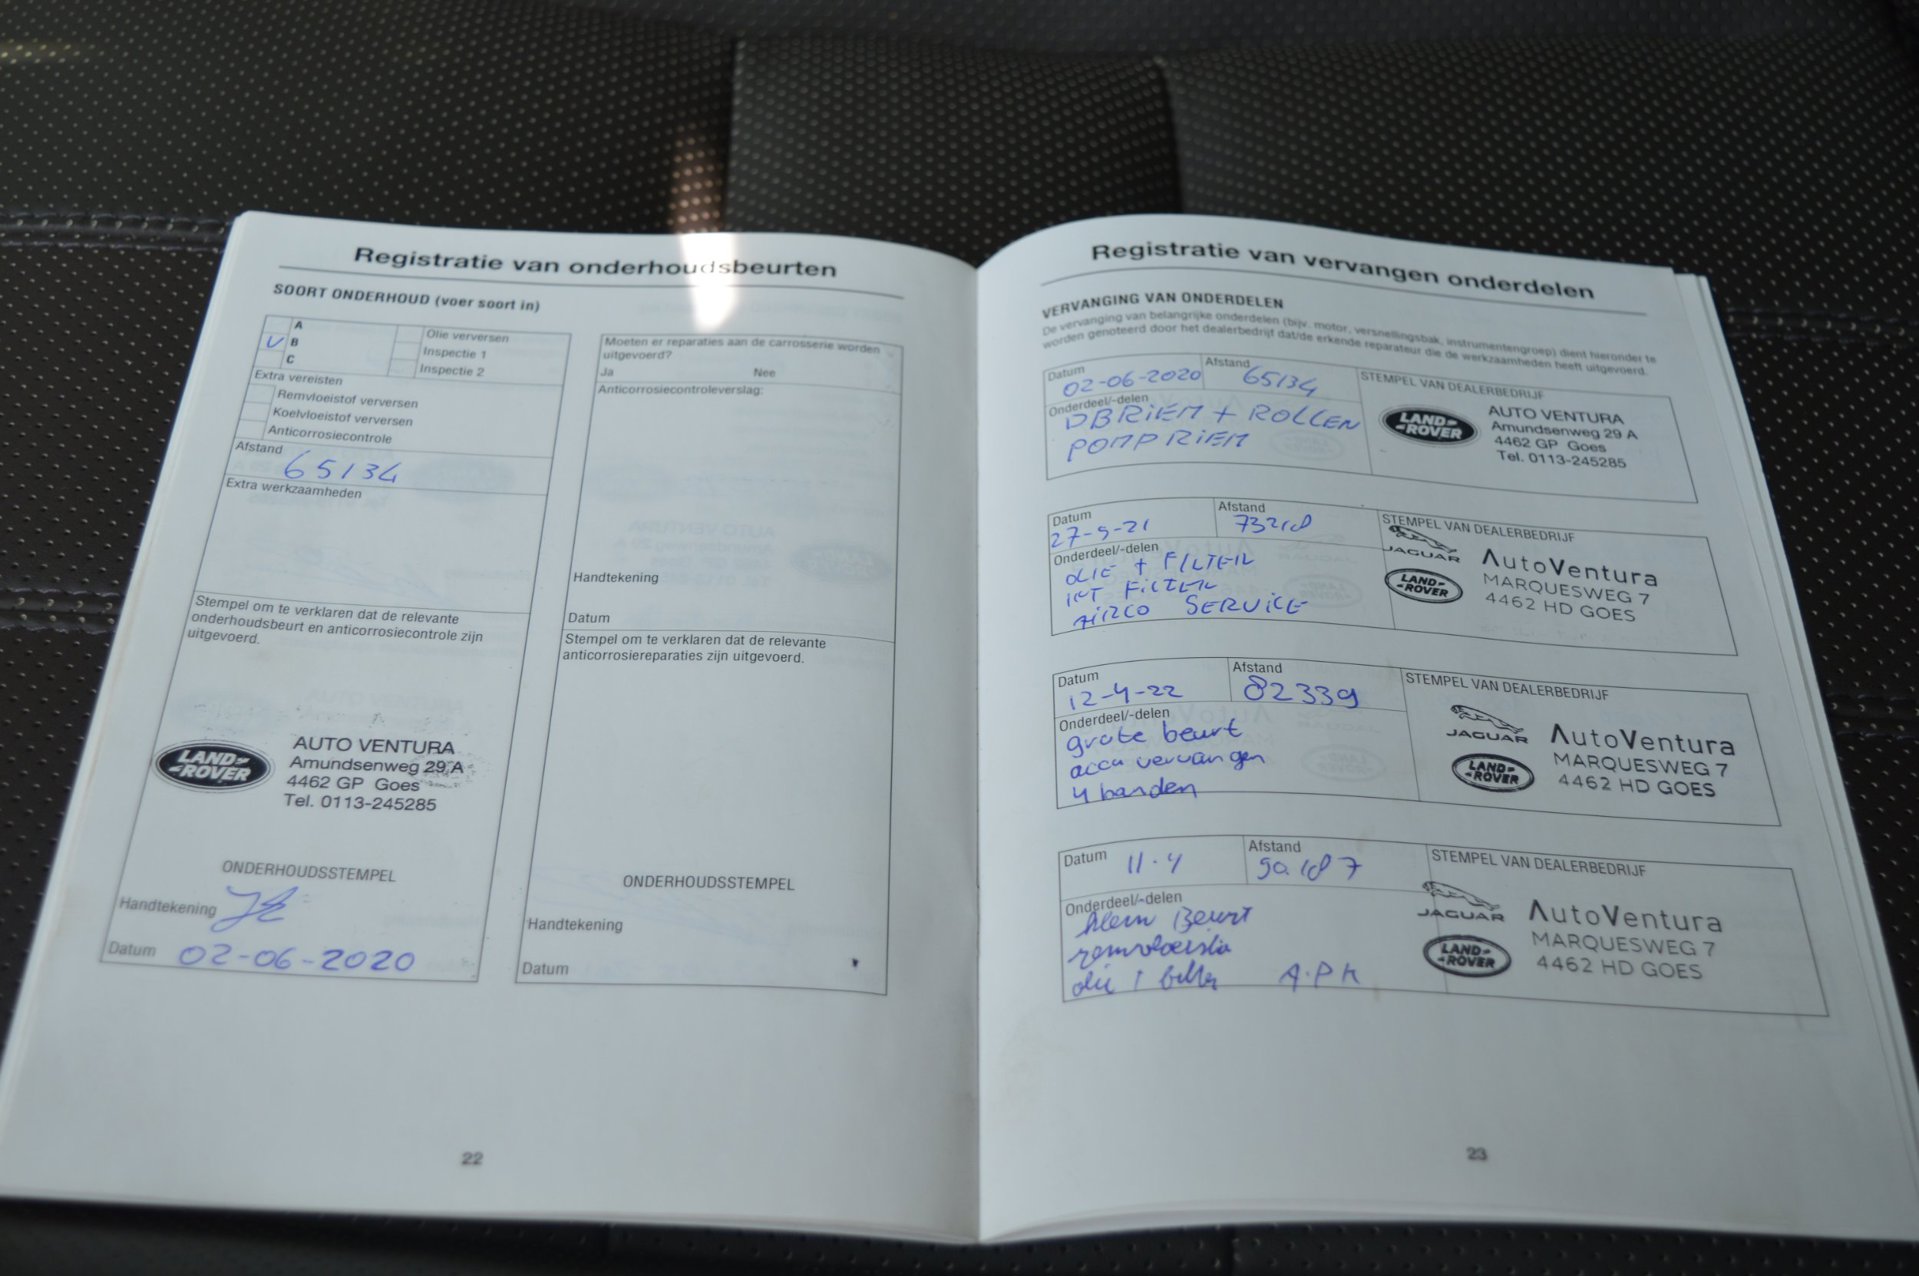 Registratie van onderhoudsbeurten
SOORT ONDERHOUD (voer soort in)
A
B
C
Olie verversen
Inspectie 1
Inspectie 2
Extra vereisten
Remvloeistof verversen
Koelvloeistof verversen
Anticorrosiecontrole
Afstand
65134
Extra werkzaamheden
Stempel om te verklaren dat de relevante
onderhoudsbeurt en anticorrosiecontrole zijn
uitgevoerd.
LAND-
-ROVER
AUTO VENTURA
Amundsenweg 29 A
4462 GP Goes
Tel. 0113-245285
ONDERHOUDSSTEMPEL
Handtekening
Datum 02-06-2020
Moeten er reparaties aan de carrosserie worden
uitgevoerd?
Ja Nee
Anticorrosiecontroleverslag:
Handtekening
Datum
Stempel om te verklaren dat de relevante
anticorrosiereparaties zijn uitgevoerd.
ONDERHOUDSSTEMPEL
Handtekening
Datum
22
Registratie van vervangen onderdelen
VERVANGING VAN ONDERDELEN
De vervanging van belangrijke onderdelen (bijv. motor, versnellingsbak, instrumentengroep) dient hieronder te
worden genoteerd door het dealerbedrijf dat/de erkende reparateur die de werkzaamheden heeft uitgevoerd.
Datum
02-06-2020
Afstand
65134
Onderdeel/-delen
DBRIEM + ROLLEN
POMPRIEM
STEMPEL VAN DEALERBEDRIJF
LAND-
-ROVER
AUTO VENTURA
Amundsenweg 29 A
4462 GP Goes
Tel. 0113-245285
Datum
27-5-21
Afstand
Onderdeel/-delen
OLIE + FILTER
INT FILTER
AIRCO SERVICE
STEMPEL VAN DEALERBEDRIJF
JAGUAR
LAND-
-ROVER
AutoVentura
MARQUESWEG 7
4462 HD GOES
Datum
12-4-22
Afstand
82339
Onderdeel/-delen
grote beurt
accu vervangen
4 banden
STEMPEL VAN DEALERBEDRIJF
JAGUAR
LAND-
-ROVER
AutoVentura
MARQUESWEG 7
4462 HD GOES
Datum 11-4
Afstand
Onderdeel/-delen
klein Beurt
A.P.K
STEMPEL VAN DEALERBEDRIJF
JAGUAR
LAND-
-ROVER
AutoVentura
MARQUESWEG 7
4462 HD GOES
23